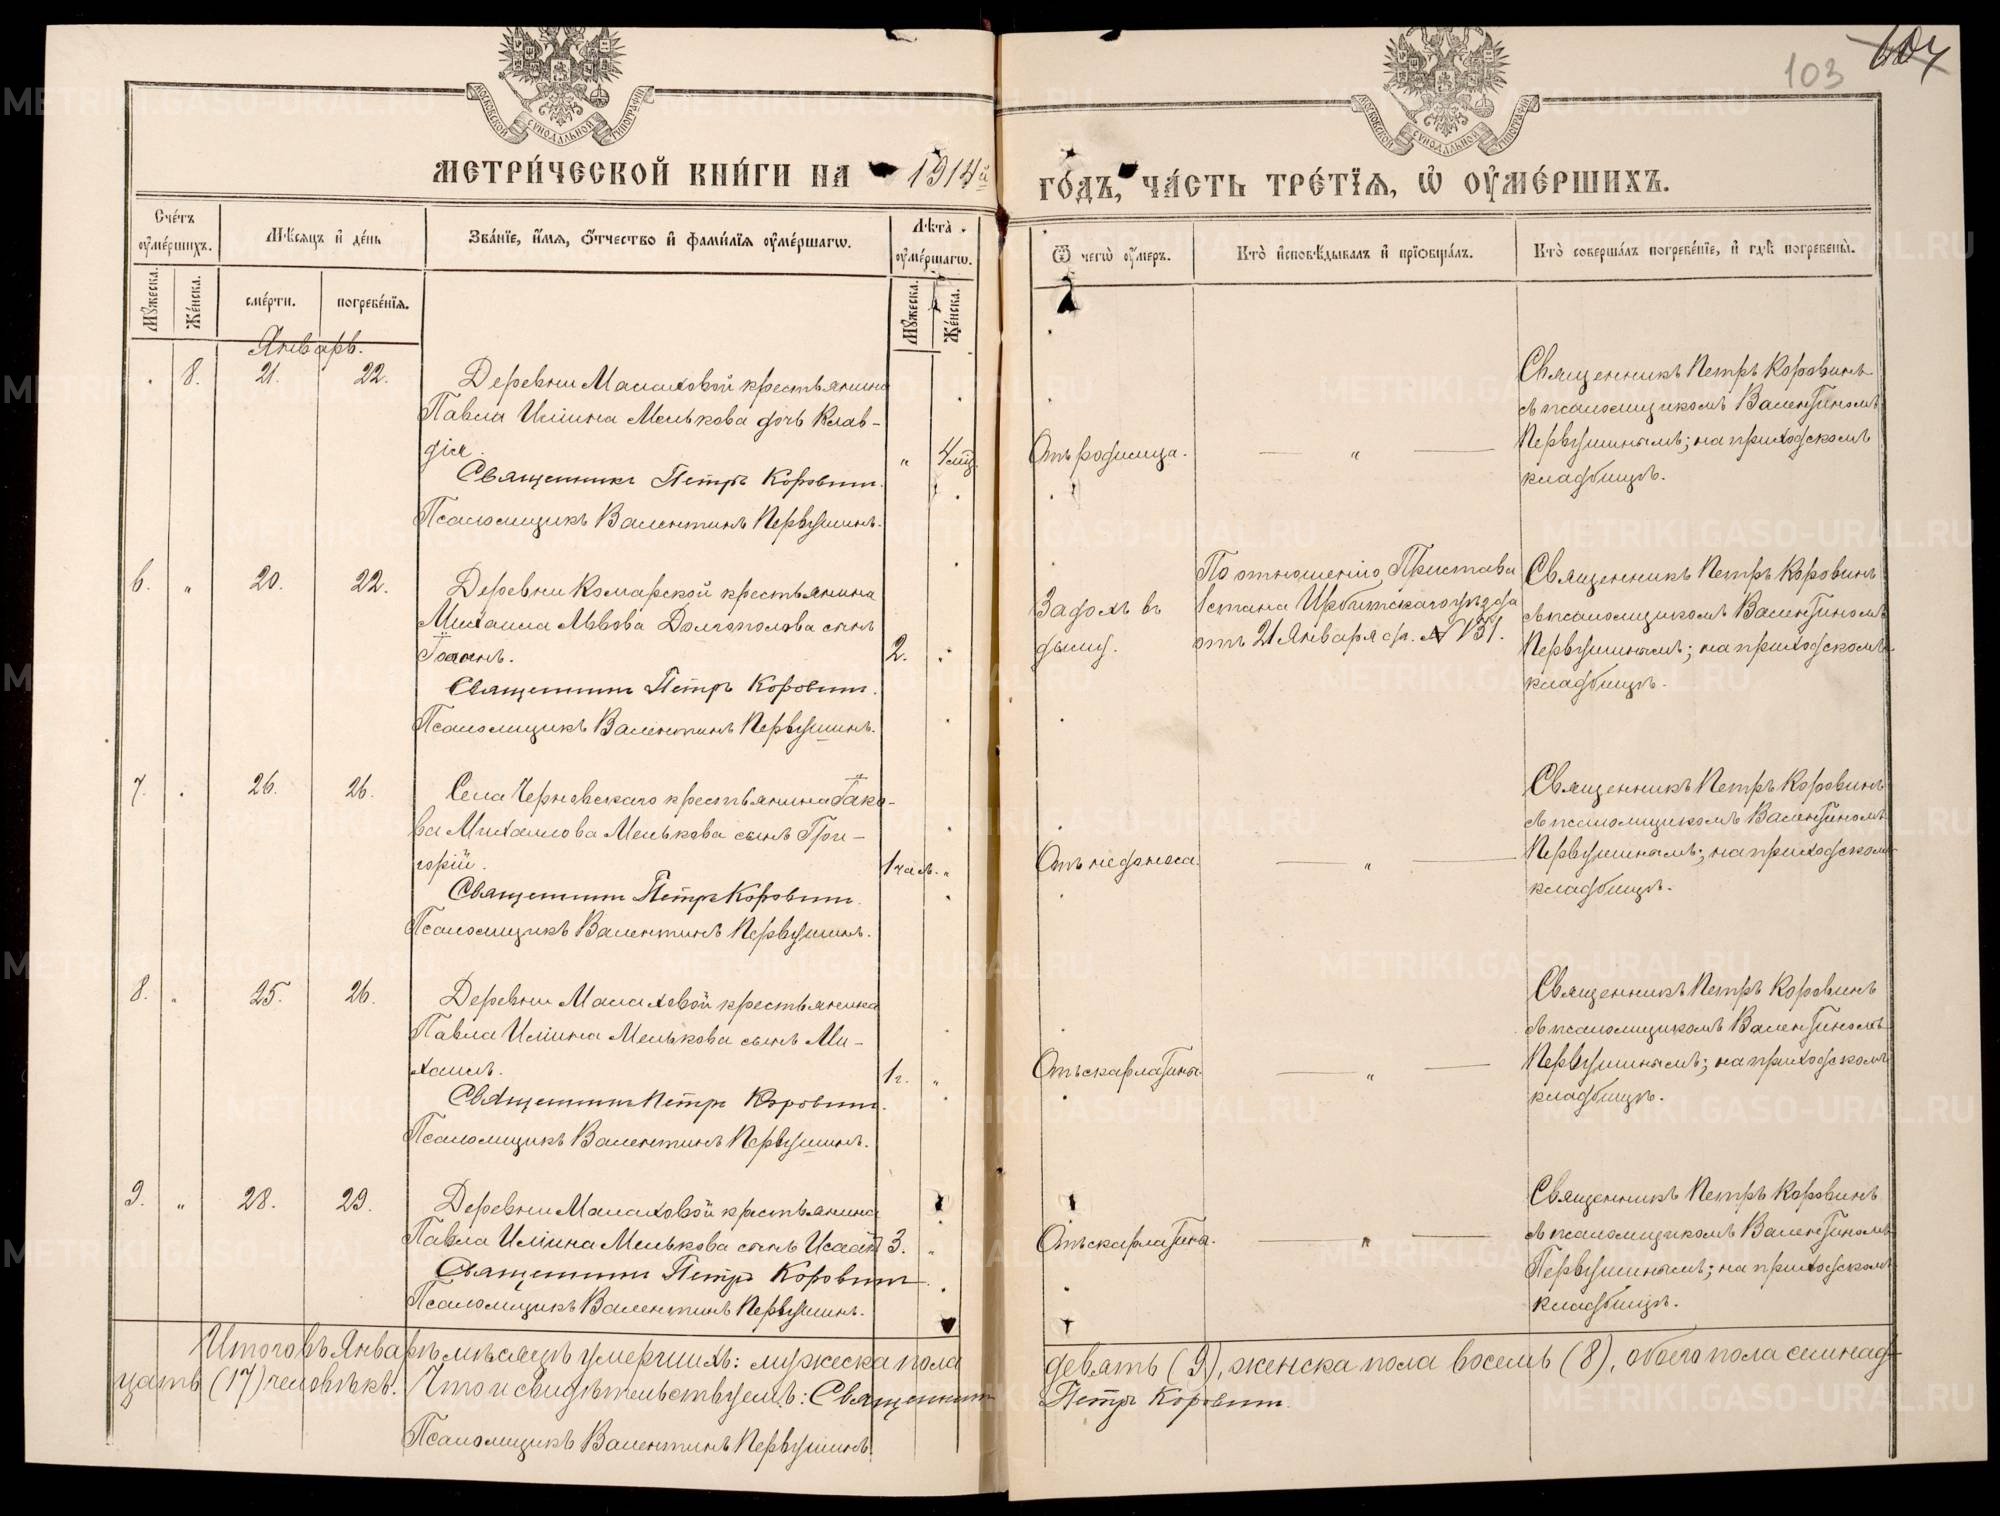 103
МОСКОВСКОЙ СѴНОДАЛЬНОЙ ТИПОГРАФІИ
МОСКОВСКОЙ СѴНОДАЛЬНОЙ ТИПОГРАФІИ
МЕТРИ́ЧЕСКОЙ КНИ́ГИ НА 1914й
ГО́ДЪ, ЧА́СТЬ ТРЕ́ТІЯ, Ѡ҆ ОУ҆МЕ́РШИХЪ.
Сче́тъ оу҆ме́ршихъ.
Мѣ́сяцъ и҆ де́нь
Зва́нїе, и҆́мя, ѻ҆́тчество и҆ фами́лїя оу҆ме́ршагѡ.
Лѣ̀та оу҆ме́ршагѡ.
Ѿ чегѡ̀ оу҆́меръ.
Кто̀ и҆сповѣ́дывалъ и҆ прїѻбща́лъ.
Кто̀ соверша́лъ погребе́нїе, и҆ гдѣ̀ погребены̀.
Мꙋ́жеска.
Же́нска.
сме́рти.
погребе́нїя.
Мꙋ́жеска.
Же́нска.
Январь.
8. 21. 22.
Деревни Малаховой крестьянина
Павла Иліина Мелькова дочь Клав-
дія.
Священникъ Петръ Коровин.
Псаломщикъ Валентинъ Первушинъ.
" 4 мѣс.
Отъ родимца.
"
Священникъ Петръ Коровинъ
съ псаломщикомъ Валентиномъ
Первушинымъ; на приходскомъ
кладбищѣ.
6. " 20. 22.
Деревни Комарской крестьянина
Михаила Львова Долгополова сынъ
Іоаннъ.
Священник Петръ Коровин.
Псаломщикъ Валентинъ Первушинъ.
2.
Задохъ въ
дыму.
По отношенію Пристава
1 стана Ирбитскаго уѣзда
отъ 21 Января с/г. № 131.
Священникъ Петръ Коровинъ
съ псаломщикомъ Валентиномъ
Первушинымъ; на приходскомъ
кладбищѣ.
7. 26. 26.
Села Черновскаго крестьянина Іако-
ва Михаилова Мелькова сынъ Гри-
горій.
Священник Петръ Коровин.
Псаломщикъ Валентинъ Первушинъ.
1 час. "
Отъ недоноса.
"
Священникъ Петръ Коровинъ
съ псаломщикомъ Валентиномъ
Первушинымъ; на приходскомъ
кладбищѣ.
8. " 25. 26.
Деревни Малаховой крестьянина
Павла Иліина Мелькова сынъ Ми-
хаилъ.
Священник Петръ Коровин.
Псаломщикъ Валентинъ Первушинъ.
1 г. "
Отъ скарлатины.
"
Священникъ Петръ Коровинъ
съ псаломщикомъ Валентиномъ
Первушинымъ; на приходскомъ
кладбищѣ.
9. " 28. 29.
Деревни Малаховой крестьянина
Павла Иліина Мелькова сынъ Исаакій
Священник Петръ Коровин.
Псаломщикъ Валентинъ Первушинъ.
3. "
Отъ скарлатины.
"
Священникъ Петръ Коровинъ
съ псаломщикомъ Валентиномъ
Первушинымъ; на приходскомъ
кладбищѣ.
Итого въ Январѣ мѣсяцѣ умершихъ: мужеска пола девять (9), женска пола восемь (8), обоего пола семнад-
цать (17) человѣкъ. Что и свидѣтельствуемъ: Священник Петръ Коровин.
Псаломщикъ Валентинъ Первушинъ.
METRIKI.GASO-URAL.RU